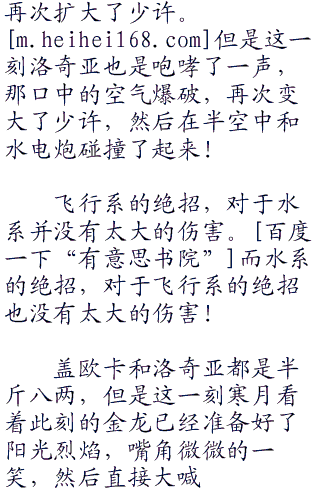 再次扩大了少许。
[m.heihei168.com]但是这一
刻洛奇亚也是咆哮了一声，
那口中的空气爆破，再次变
大了少许，然后在半空中和
水电炮碰撞了起来！
飞行系的绝招，对于水
系并没有太大的伤害。[百度
一下“有意思书院”]而水系
的绝招，对于飞行系的绝招
也没有太大的伤害！
盖欧卡和洛奇亚都是半
斤八两，但是这一刻寒月看
着此刻的金龙已经准备好了
阳光烈焰，嘴角微微的一
笑，然后直接大喊